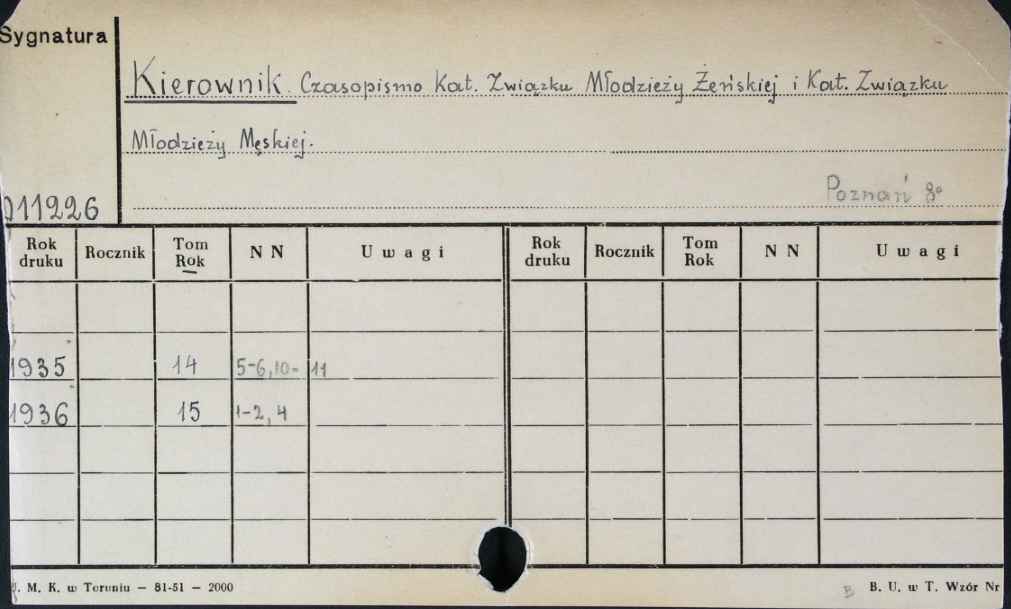 Sygnatura
Kierownik. Czasopismo Kat. Związku Młodzieży Żeńskiej i Kat. Związku
Młodzieży Męskiej.
Poznań 8°
011226
Rok druku Rocznik Tom Rok N N Uwagi Rok druku Rocznik Tom Rok N N Uwagi
1935 14 5-6, 10-11
1936 15 1-2, 4
J. M. K. w Toruniu — 81-51 — 2000
B B. U. w T. Wzór Nr